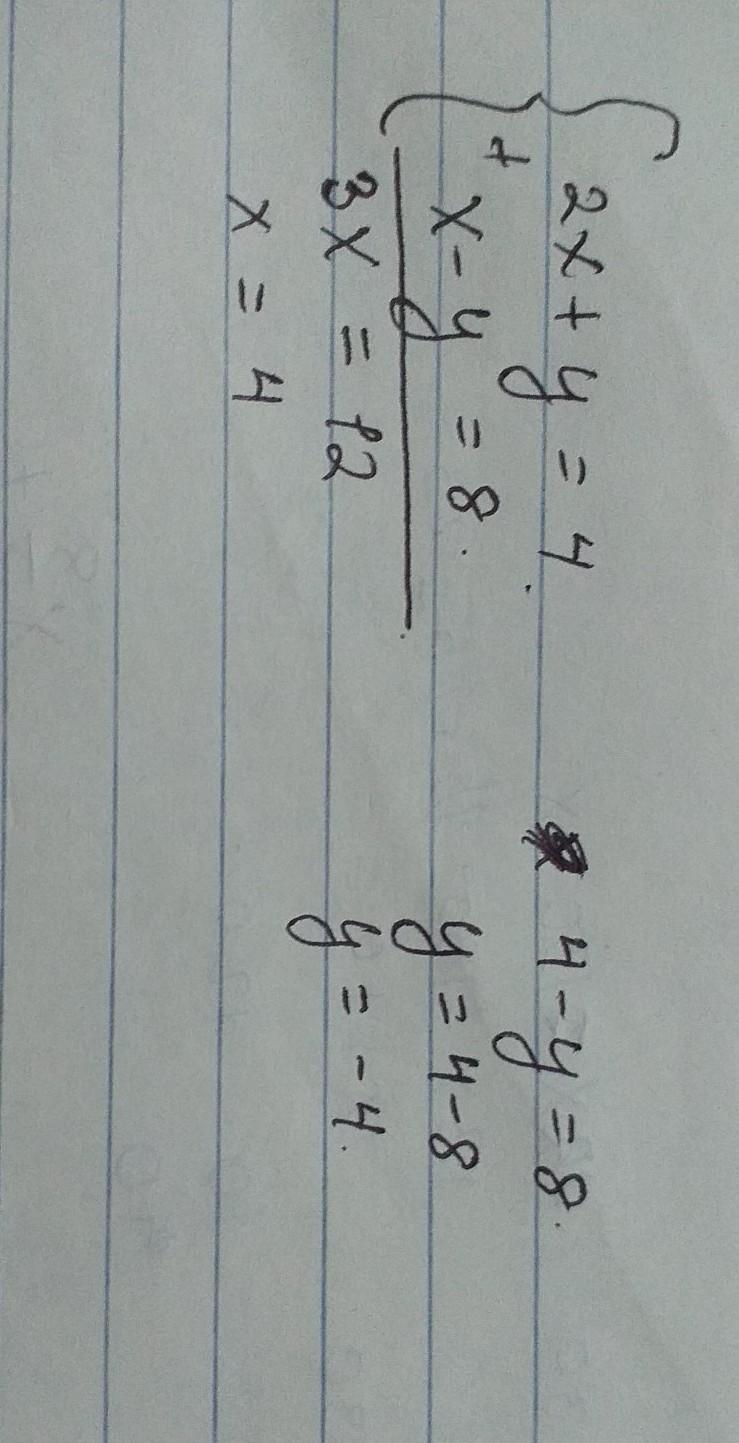 2x + y = 4.
+
x - y = 8.
3x = 12
x = 4
4 - y = 8.
y = 4 - 8
y = -4.